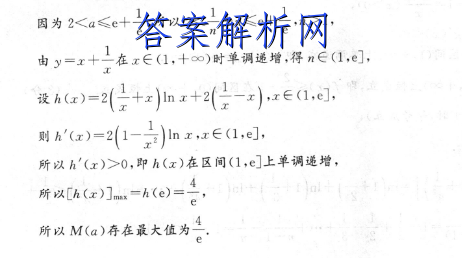 因为 2<a≤e+1/e,所以
答案解析网
由 y=x+1/x 在 x∈(1,+∞)时单调递增,得 n∈(1,e],
设 h(x)=2(1/x+x)ln x+2(1/x-x),x∈(1,e],
则 h′(x)=2(1-1/x²)ln x,x∈(1,e],
所以 h′(x)>0,即 h(x)在区间(1,e]上单调递增,
所以[h(x)]max=h(e)=4/e,
所以 M(a)存在最大值为 4/e.